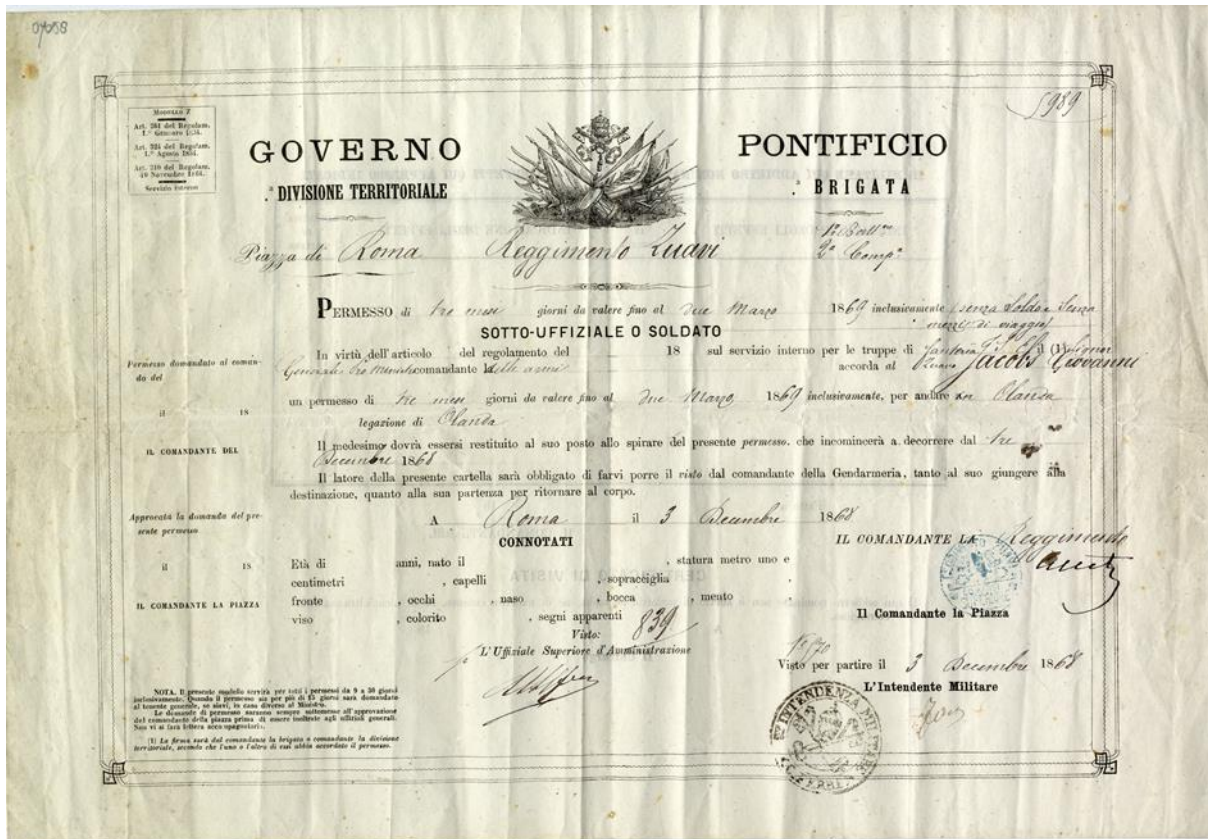 04058
5989)
MODULE Z
Art. 261 del Regolam.
1.° Gennaro
Art. 324 del Regolam.
1.° Agosto
Art. 210 del Regolam.
Novembre
Servizio interno
GOVERNO PONTIFICIO
.ª DIVISIONE TERRITORIALE
.ª BRIGATA
Piazza di Roma Reggimento Zuavi
1° Batt.ne
2ª Comp.ª
PERMESSO di tre mesi giorni da valere fino al due Marzo 1869 inclusivamente (senza Soldo e Senza
mezzi di viaggio)
SOTTO-UFFIZIALE O SOLDATO
In virtù dell'articolo del regolamento del 18 sul servizio interno per le truppe di fanteria il (1) signor
Generale Pro Ministro comandante la delle armi accorda al Zuavo Jacobs Giovanni
un permesso di tre mesi giorni da valere fino al due Marzo 1869 inclusivamente, per andare in Olanda
legazione di Olanda
Il medesimo dovrà essersi restituito al suo posto allo spirare del presente permesso, che incomincerà a decorrere dal tre
Decembre 1868
Il latore della presente cartella sarà obbligato di farvi porre il visto dal comandante della Gendarmeria, tanto al suo giungere alla
destinazione, quanto alla sua partenza per ritornare al corpo.
A Roma il 3 Decembre 1868
Permesso domandato al coman-
do del
il 18
IL COMANDANTE DEL
Approvata la domanda del pre-
sente permesso
il 18
IL COMANDANTE LA PIAZZA
CONNOTATI
Età di anni, nato il , statura metro uno e
centimetri , capelli , sopracciglia .
fronte , occhi , naso , bocca , mento .
viso , colorito , segni apparenti
Visto: 839
L'Uffiziale Superiore d'Amministrazione
IL COMANDANTE LA Reggimento
Il Comandante la Piazza
Visto per partire il 3 Decembre 1868
L'Intendente Militare
INTENDENZA MILITARE
NOTA. Il presente modello servirà per tutti i permessi da 9 a 30 giorni
inclusivamente. Quando il permesso sia per più di 15 giorni sarà domandato
al tenente generale, se siavi, in caso diverso al Ministro.
Le domande di permesso saranno sempre sottomesse all'approvazione
del comandante della piazza prima di essere inoltrate agli uffizial generali.
Non vi si farà lettera accompagnatoria.
(1) La firma sarà del comandante la brigata o comandante la divisione
territoriale, secondo che l'uno o l'altro di essi abbia accordato il permesso.